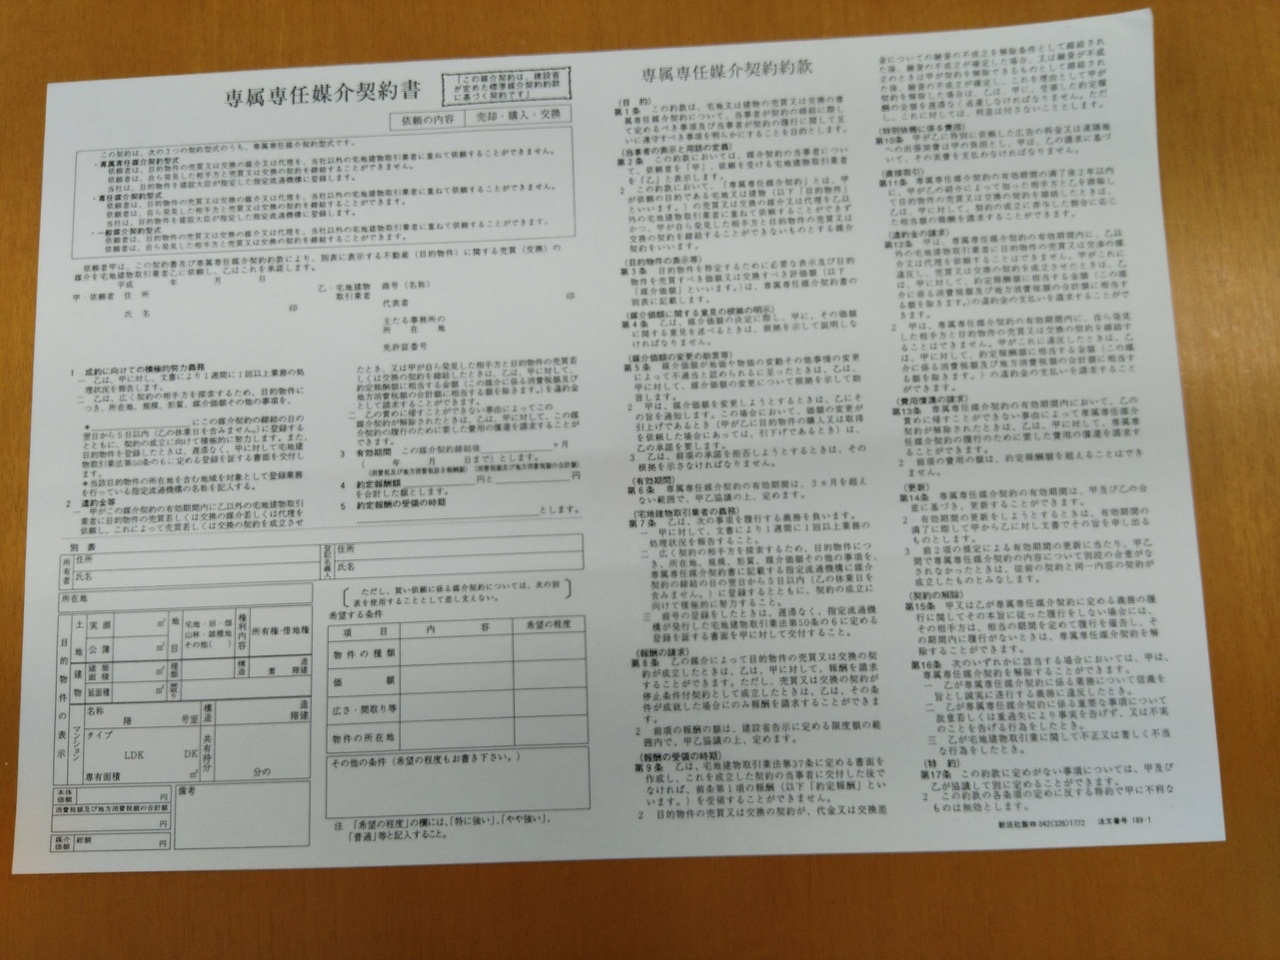 専属専任媒介契約書
「この媒介契約は、建設省
が定めた標準媒介契約約款
に基づく契約です」
依頼の内容 売却・購入・交換
この契約は、次の3つの契約型式のうち、専属専任媒介契約型式です。
・専属専任媒介契約型式
依頼者は、目的物件の売買又は交換の媒介又は代理を、当社以外の宅地建物取引業者に重ねて依頼することができません。
依頼者は、自ら発見した相手方と売買又は交換の契約を締結することができません。
当社は、目的物件を建設大臣が指定した指定流通機構に登録します。
・専任媒介契約型式
依頼者は、目的物件の売買又は交換の媒介又は代理を、当社以外の宅地建物取引業者に重ねて依頼することができません。
依頼者は、自ら発見した相手方と売買又は交換の契約を締結することができます。
当社は、目的物件を建設大臣が指定した指定流通機構に登録します。
・一般媒介契約型式
依頼者は、目的物件の売買又は交換の媒介又は代理を、当社以外の宅地建物取引業者に重ねて依頼することができます。
依頼者は、自ら発見した相手方と売買又は交換の契約を締結することができます。
依頼者甲は、この契約書及び専属専任媒介契約約款により、別表に表示する不動産(目的物件)に関する売買(交換)の
媒介を宅地建物取引業者乙に依頼し、乙はこれを承諾します。
平成 年 月 日
甲・依頼者 住所
氏名 印
乙・宅地建物取引業者 商号(名称)
代表者 印
主たる事務所の
所在地
免許証番号
1 成約に向けての積極的努力義務
一 乙は、甲に対し、文書により1週間に1回以上業務の処
理状況を報告します。
二 乙は、広く契約の相手方を探索するため、目的物件に
つき、所在地、規模、形質、媒介価額その他の事項を、
*にこの契約の締結の日の
翌日から5日以内(乙の休業日を含みません。)に登録する
とともに、契約の成立に向けて積極的に努力します。また、
目的物件を登録したときは、遅滞なく、甲に対して宅地建
物取引業法第50条の6に定める登録を証する書面を交付し
ます。
*当該目的物件の所在地を含む地域を対象として登録業務
を行っている指定流通機構の名称を記入する。
2 違約金等
一 甲がこの媒介契約の有効期間内に乙以外の宅地建物取引
業者に目的物件の売買若しくは交換の媒介若しくは代理を
依頼し、これによって売買若しくは交換の契約を成立させ
たとき、又は甲が自ら発見した相手方と目的物件の売買若
しくは交換の契約を締結したときは、乙は、甲に対して、
約定報酬額に相当する金額(この媒介に係る消費税額及び
地方消費税額の合計額に相当する額を除きます。)を違約金
として請求することができます。
二 乙の責めに帰すことができない事由によってこの
媒介契約が解除されたときは、乙は、甲に対して、この媒
介契約の履行のために要した費用の償還を請求することが
できます。
3 有効期間 この媒介契約締結後 ヶ月
( 年 月 日まで)とします。
4 約定報酬額 (消費税及び地方消費税抜き報酬額) 円と (消費税額及び地方消費税額の合計額) 円
を合計した額とします。
5 約定報酬の受領の時期
とします。
別表
所有者 住所
氏名
登記名義人 住所
氏名
所在地
目的物件の表示
土地 実測 ㎡
公簿 ㎡
地目 宅地・田・畑
山林・雑種地
その他( )
権利内容 所有権・借地権
建物 建築面積 ㎡ 種類 構造 造
葺 階建
延面積 ㎡ 間取り
マンション 名称
階 号室
構造 造
階建
タイプ
LDK DK
専有面積 ㎡
共有持分 分の
本体価額 円
消費税額及び地方消費税額の合計額
円
媒介価額 総額
円
備考
(ただし、買い依頼に係る媒介契約については、次の別
表を使用することとして差し支えない。)
希望する条件
項目 内容 希望の程度
物件の種類
価額
広さ・間取り等
物件の所在地
その他の条件(希望の程度もお書き下さい。)
注 「希望の程度」の欄には、「特に強い」、「やや強い」、
「普通」等と記入すること。
専属専任媒介契約約款
(目的)
第1条 この約款は、宅地又は建物の売買又は交換の専
属専任媒介契約について、当事者が契約の締結に際し
て定めるべき事項及び当事者が契約の履行に関して互
いに遵守すべき事項を明らかにすることを目的とします。
(当事者の表示と用語の定義)
第2条 この約款においては、媒介契約の当事者につい
て、依頼者を「甲」、依頼を受ける宅地建物取引業者
を「乙」と表示します。
2 この約款において、「専属専任媒介契約」とは、甲
が依頼の目的である宅地又は建物(以下「目的物件」
といいます。)の売買又は交換の媒介又は代理を乙以
外の宅地建物取引業者に重ねて依頼することができず、
かつ、甲が自ら発見した相手方と目的物件の売買又は
交換の契約を締結することができないものとする媒介
契約をいいます。
(目的物件の表示等)
第3条 目的物件を特定するために必要な表示及び目的
物件を売買すべき価額又は交換すべき評価額(以下
「媒介価額」といいます。)は、専属専任媒介契約書の
別表に記載します。
(媒介価額に関する意見の根拠の明示)
第4条 乙は、媒介価額の決定に際し、甲に、その価額
に関する意見を述べるときは、根拠を示して説明しな
ければなりません。
(媒介価額の変更の助言等)
第5条 媒介価額が地価や物価の変動その他事情の変更
によって不適当と認められるに至ったときは、乙は、
甲に対して、媒介価額の変更について根拠を示して助
言します。
2 甲は、媒介価額を変更しようとするときは、乙にそ
の旨を通知します。この場合において、価額の変更が
引上げであるとき(甲が乙に目的物件の購入又は取得
を依頼した場合にあっては、引下げであるとき)は、
乙の承諾を要します。
3 乙は、前項の承諾を拒否しようとするときは、その
根拠を示さなければなりません。
(有効期間)
第6条 専属専任媒介契約の有効期間は、3ヵ月を超え
ない範囲で、甲乙協議の上、定めます。
(宅地建物取引業者の義務)
第7条 乙は、次の事項を履行する義務を負います。
一 甲に対して、文書により1週間に1回以上業務の
処理状況を報告すること。
二 広く契約の相手方を探索するため、目的物件につ
き、所在地、規模、形質、媒介価額その他の事項を、
専属専任媒介契約書に記載する指定流通機構に媒介
契約の締結の日の翌日から5日以内(乙の休業日を
含みません。)に登録するとともに、契約の成立に
向けて積極的に努力すること。
三 前号の登録をしたときは、遅滞なく、指定流通機
構が発行した宅地建物取引業法第50条の6に定める
登録を証する書面を甲に対して交付すること。
(報酬の請求)
第8条 乙の媒介によって目的物件の売買又は交換の契
約が成立したときは、乙は、甲に対して、報酬を請求
することができます。ただし、売買又は交換の契約が
停止条件付契約として成立したときは、乙は、その条
件が成就した場合にのみ報酬を請求することができま
す。
2 前項の報酬の額は、建設省告示に定める限度額の範
囲内で、甲乙協議の上、定めます。
(報酬の受領の時期)
第9条 乙は、宅地建物取引業法第37条に定める書面を
作成し、これを成立した契約の当事者に交付した後で
なければ、前条第1項の報酬(以下「約定報酬」とい
います。)を受領することができません。
2 目的物件の売買又は交換の契約が、代金又は交換差
金についての融資の不成立を解除条件として締結され
た後、融資の不成立が確定した場合、又は融資が不成
立のときは甲が契約を解除できるものとして締結され
た後、融資の不成立が確定し、これを理由として甲が
契約を解除した場合は、乙は、甲に、受領した約定報
酬の全額を遅滞なく返還しなければなりません。ただ
し、これに対しては、利息は付さないこととします。
(特別依頼に係る費用)
第10条 甲が乙に特別に依頼した広告の料金又は遠隔地
への出張旅費は甲の負担とし、甲は、乙の請求に基づ
いて、その実費を支払わなければなりません。
(直接取引)
第11条 専属専任媒介契約の有効期間の満了後2年以内
に、甲が乙の紹介によって知った相手方と乙を排除し
て目的物件の売買又は交換の契約を締結したときは、
乙は、甲に対して、契約の成立に寄与した割合に応じ
た相当額の報酬を請求することができます。
(違約金の請求)
第12条 甲は、専属専任媒介契約の有効期間内に、乙以
外の宅地建物取引業者に目的物件の売買又は交換の媒
介又は代理を依頼することはできません。甲がこれに
違反し、売買又は交換の契約を成立させたときは、乙
は、甲に対して、約定報酬額に相当する金額(この媒
介に係る消費税額及び地方消費税額の合計額に相当す
る額を除きます。)の違約金の支払いを請求することがで
きます。
2 甲は、専属専任媒介契約の有効期間内に、自ら発見
した相手方と目的物件の売買又は交換の契約を締結す
ることはできません。甲がこれに違反したときは、乙
は、甲に対して、約定報酬額に相当する金額(この媒
介に係る消費税額及び地方消費税額の合計額に相当す
る額を除きます。)の違約金の支払いを請求することが
できます。
(費用償還の請求)
第13条 専属専任媒介契約の有効期間内において、乙の
責めに帰すことができない事由によって専属専任媒介
契約が解除されたときは、乙は、甲に対して、専属専
任媒介契約の履行のために要した費用の償還を請求す
ることができます。
2 前項の費用の額は、約定報酬額を超えることはでき
ません。
(更新)
第14条 専属専任媒介契約の有効期間は、甲及び乙の合
意に基づき、更新することができます。
2 有効期間の更新をしようとするときは、有効期間の
満了に際して甲から乙に対し文書でその旨を申し出る
ものとします。
3 前2項の規定による有効期間の更新に当たり、甲乙
間で専属専任媒介契約の内容について別段の合意がな
されなかったときは、従前の契約と同一内容の契約が
成立したものとみなします。
(契約の解除)
第15条 甲又は乙が専属専任媒介契約に定める義務の履
行に関してその本旨に従った履行をしない場合には、
その相手方は、相当の期間を定めて履行を催告し、そ
の期間内に履行がないときは、専属専任媒介契約を解
除することができます。
第16条 次のいずれかに該当する場合においては、甲は、
専属専任媒介契約を解除することができます。
一 乙が専属専任媒介契約に係る業務について信義を
旨とし誠実に遂行する義務に違反したとき。
二 乙が専属専任媒介契約に係る重要な事項について
故意若しくは重過失により事実を告げず、又は不実
のことを告げる行為をしたとき。
三 乙が宅地建物取引業に関して不正又は著しく不当
な行為をしたとき。
(特約)
第17条 この約款に定めがない事項については、甲及び
乙が協議して別に定めることができます。
2 この約款の各条項の定めに反する特約で甲に不利な
ものは無効とします。
042(326)1772 注文番号 189-1